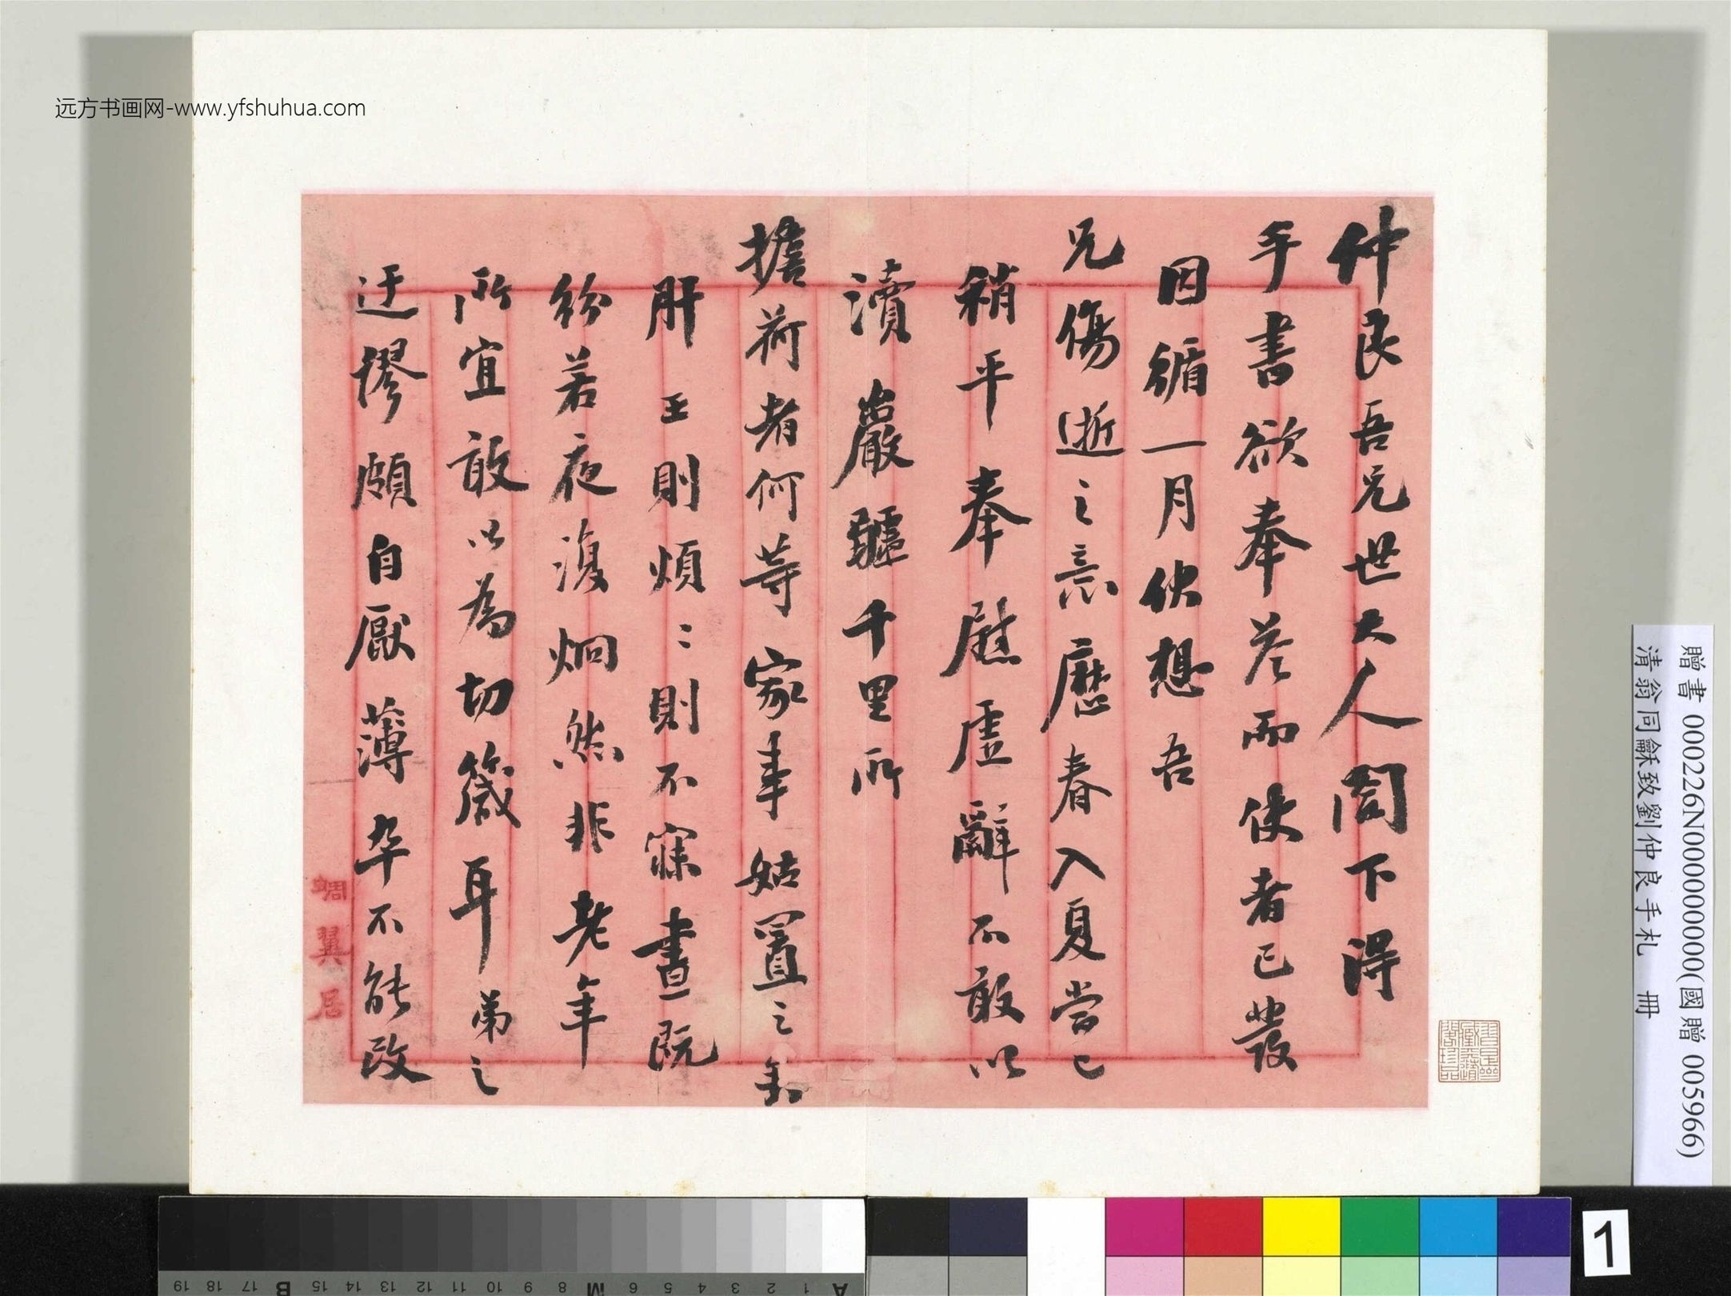 远方书画网-www.yfshuhua.com
仲良吾兄世大人閣下得
手書欲奉答而使者已發
因循一月伏想吾
兄傷逝之意歷春入夏嘗已
稍平奉慰虛辭不敢以
瀆嚴聽千里所
擔荷者何等家事姑置之
肝王則煩〻則不寐晝既
紛若夜復炯然非老年
所宜敢以為切箴耳弟之
迂謬頗自厭薄卒不能改
蜩翼居
贈書 000226N000000000(國贈 005966)
清翁同龢致劉仲良手札 冊
1